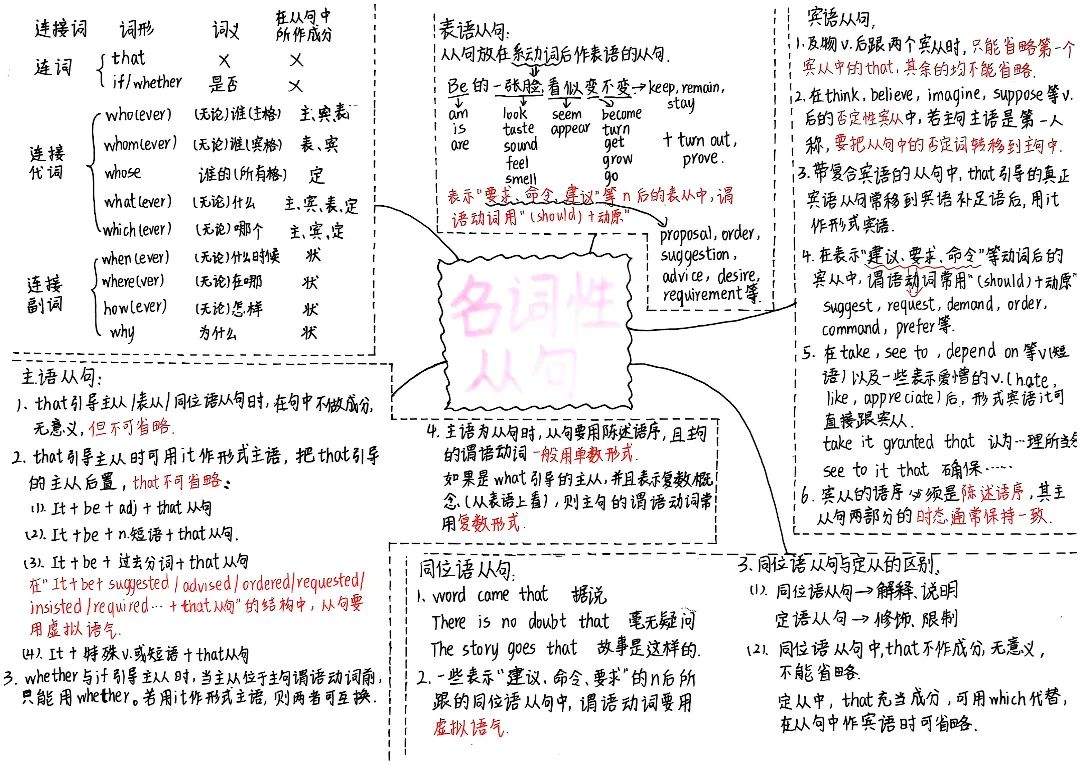 连接词 词形 词义 在从句中所作成分
连词
that × ×
if/whether 是否 ×
连接代词
who(ever) (无论)谁(主格) 主、宾、表
whom(ever) (无论)谁(宾格) 表、宾
whose 谁的(所有格) 定
what(ever) (无论)什么 主、宾、表、定
which(ever) (无论)哪个 主、宾、定
连接副词
when(ever) (无论)什么时候 状
where(ver) (无论)在哪 状
how(ever) (无论)怎样 状
why 为什么 状
表语从句:
从句放在系动词后作表语的从句.
Be的一张脸,看似变不变→keep, remain, stay
am look seem become
is taste appear turn
are sound get
feel grow
smell go
+ turn out, prove.
表示"要求、命令、建议"等n后的表从中,谓
语动词用"(should)+动原"
proposal, order,
suggestion,
advice, desire,
requirement等.
宾语从句.
1.及物v.后跟两个宾从时,只能省略第一个
宾从中的that,其余的均不能省略.
2.在think, believe, imagine, suppose等v.
后的否定性宾从中,若主句主语是第一人
称,要把从句中的否定词转移到主句中.
3.带复合宾语的从句中,that引导的真正
宾语从句常移到宾语补足语后,用it
作形式宾语.
4.在表示"建议、要求、命令"等动词后的
宾从中,谓语动词常用"(should)+动原"
suggest, request, demand, order,
command, prefer等.
5. 在take, see to, depend on等v(短
语)以及一些表示爱憎的v.(hate,
like, appreciate)后,形式宾语it可
直接跟宾从.
take it granted that 认为…理所当
see to it that 确保……
6. 宾从的语序必须是陈述语序,其主
从句两部分的时态通常保持一致.
名词性
从句
主语从句:
1、that引导主从/表从/同位语从句时,在句中不做成分,
无意义,但不可省略.
2. that引导主从时可用it作形式主语,把that引导
的主从后置,that不可省略:
(1). It+be+adj+that从句
(2). It+be+n.短语+that从句
(3). It+be+过去分词+that从句
在"It+be+suggested/advised/ordered/requested/
insisted/required…+that从句"的结构中,从句要
用虚拟语气.
(4). It+特殊v.或短语+that从句
3. whether与if引导主从时,当主从位于主句谓语动词前,
只能用whether。若用it作形式主语,则两者可互换.
4. 主语为从句时,从句要用陈述语序,且主句
的谓语动词一般用单数形式.
如果是what引导的主从,并且表示复数概
念(从表语上看),则主句的谓语动词常
用复数形式.
同位语从句:
1. word came that 据说
There is no doubt that 毫无疑问
The story goes that 故事是这样的.
2. 一些表示"建议、命令、要求"的n后所
跟的同位语从句中,谓语动词要用
虚拟语气.
3.同位语从句与定从的区别.
(1). 同位语从句→解释、说明
定语从句→修饰、限制
(2). 同位语从句中,that不作成分,无意义,
不能省略.
定从中,that充当成分,可用which代替,
在从句中作宾语时可省略.